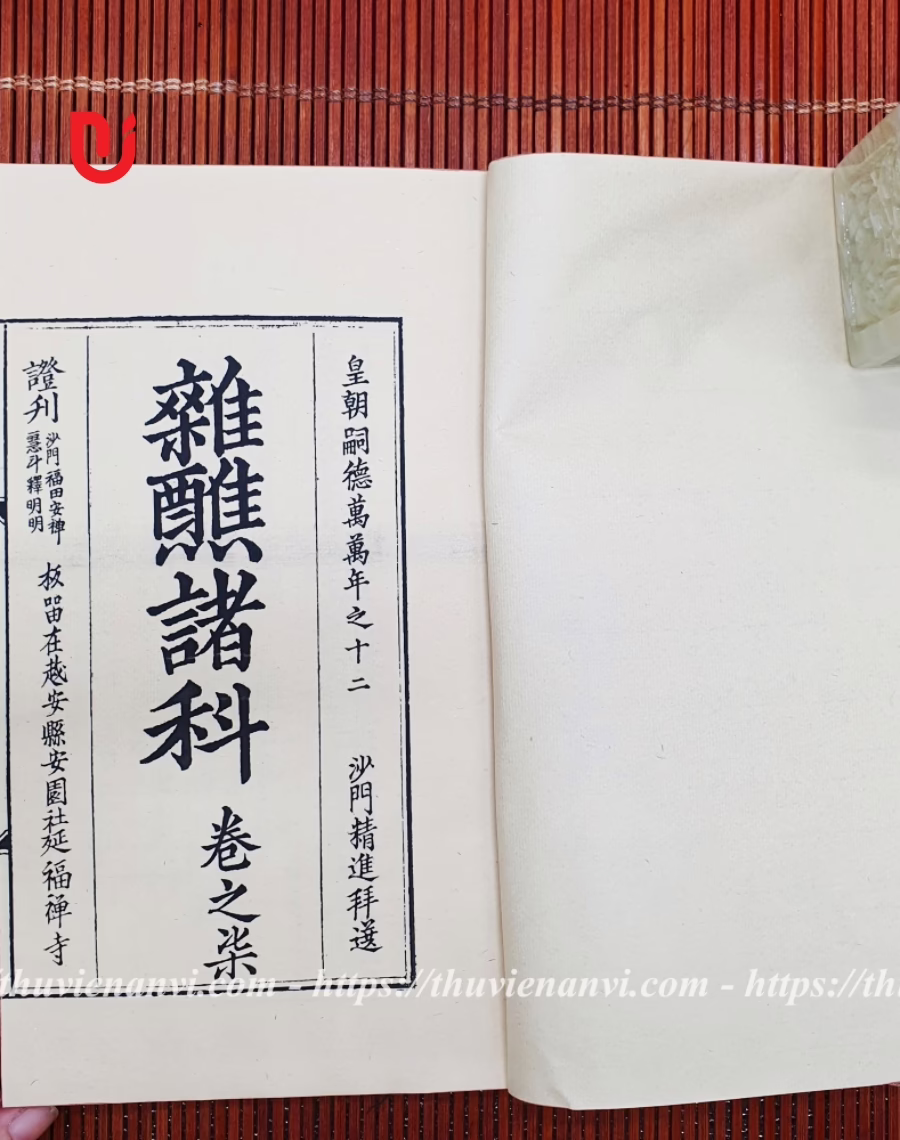 皇朝嗣德萬萬年之十二 沙門精進拜選
雜醮諸科 卷之柒
證刋 沙門福田安禅
慧斗釋明明
板留在越安縣安園社延福禅寺
thuvienanvi.com - https://thuvienanvi.com - https://th